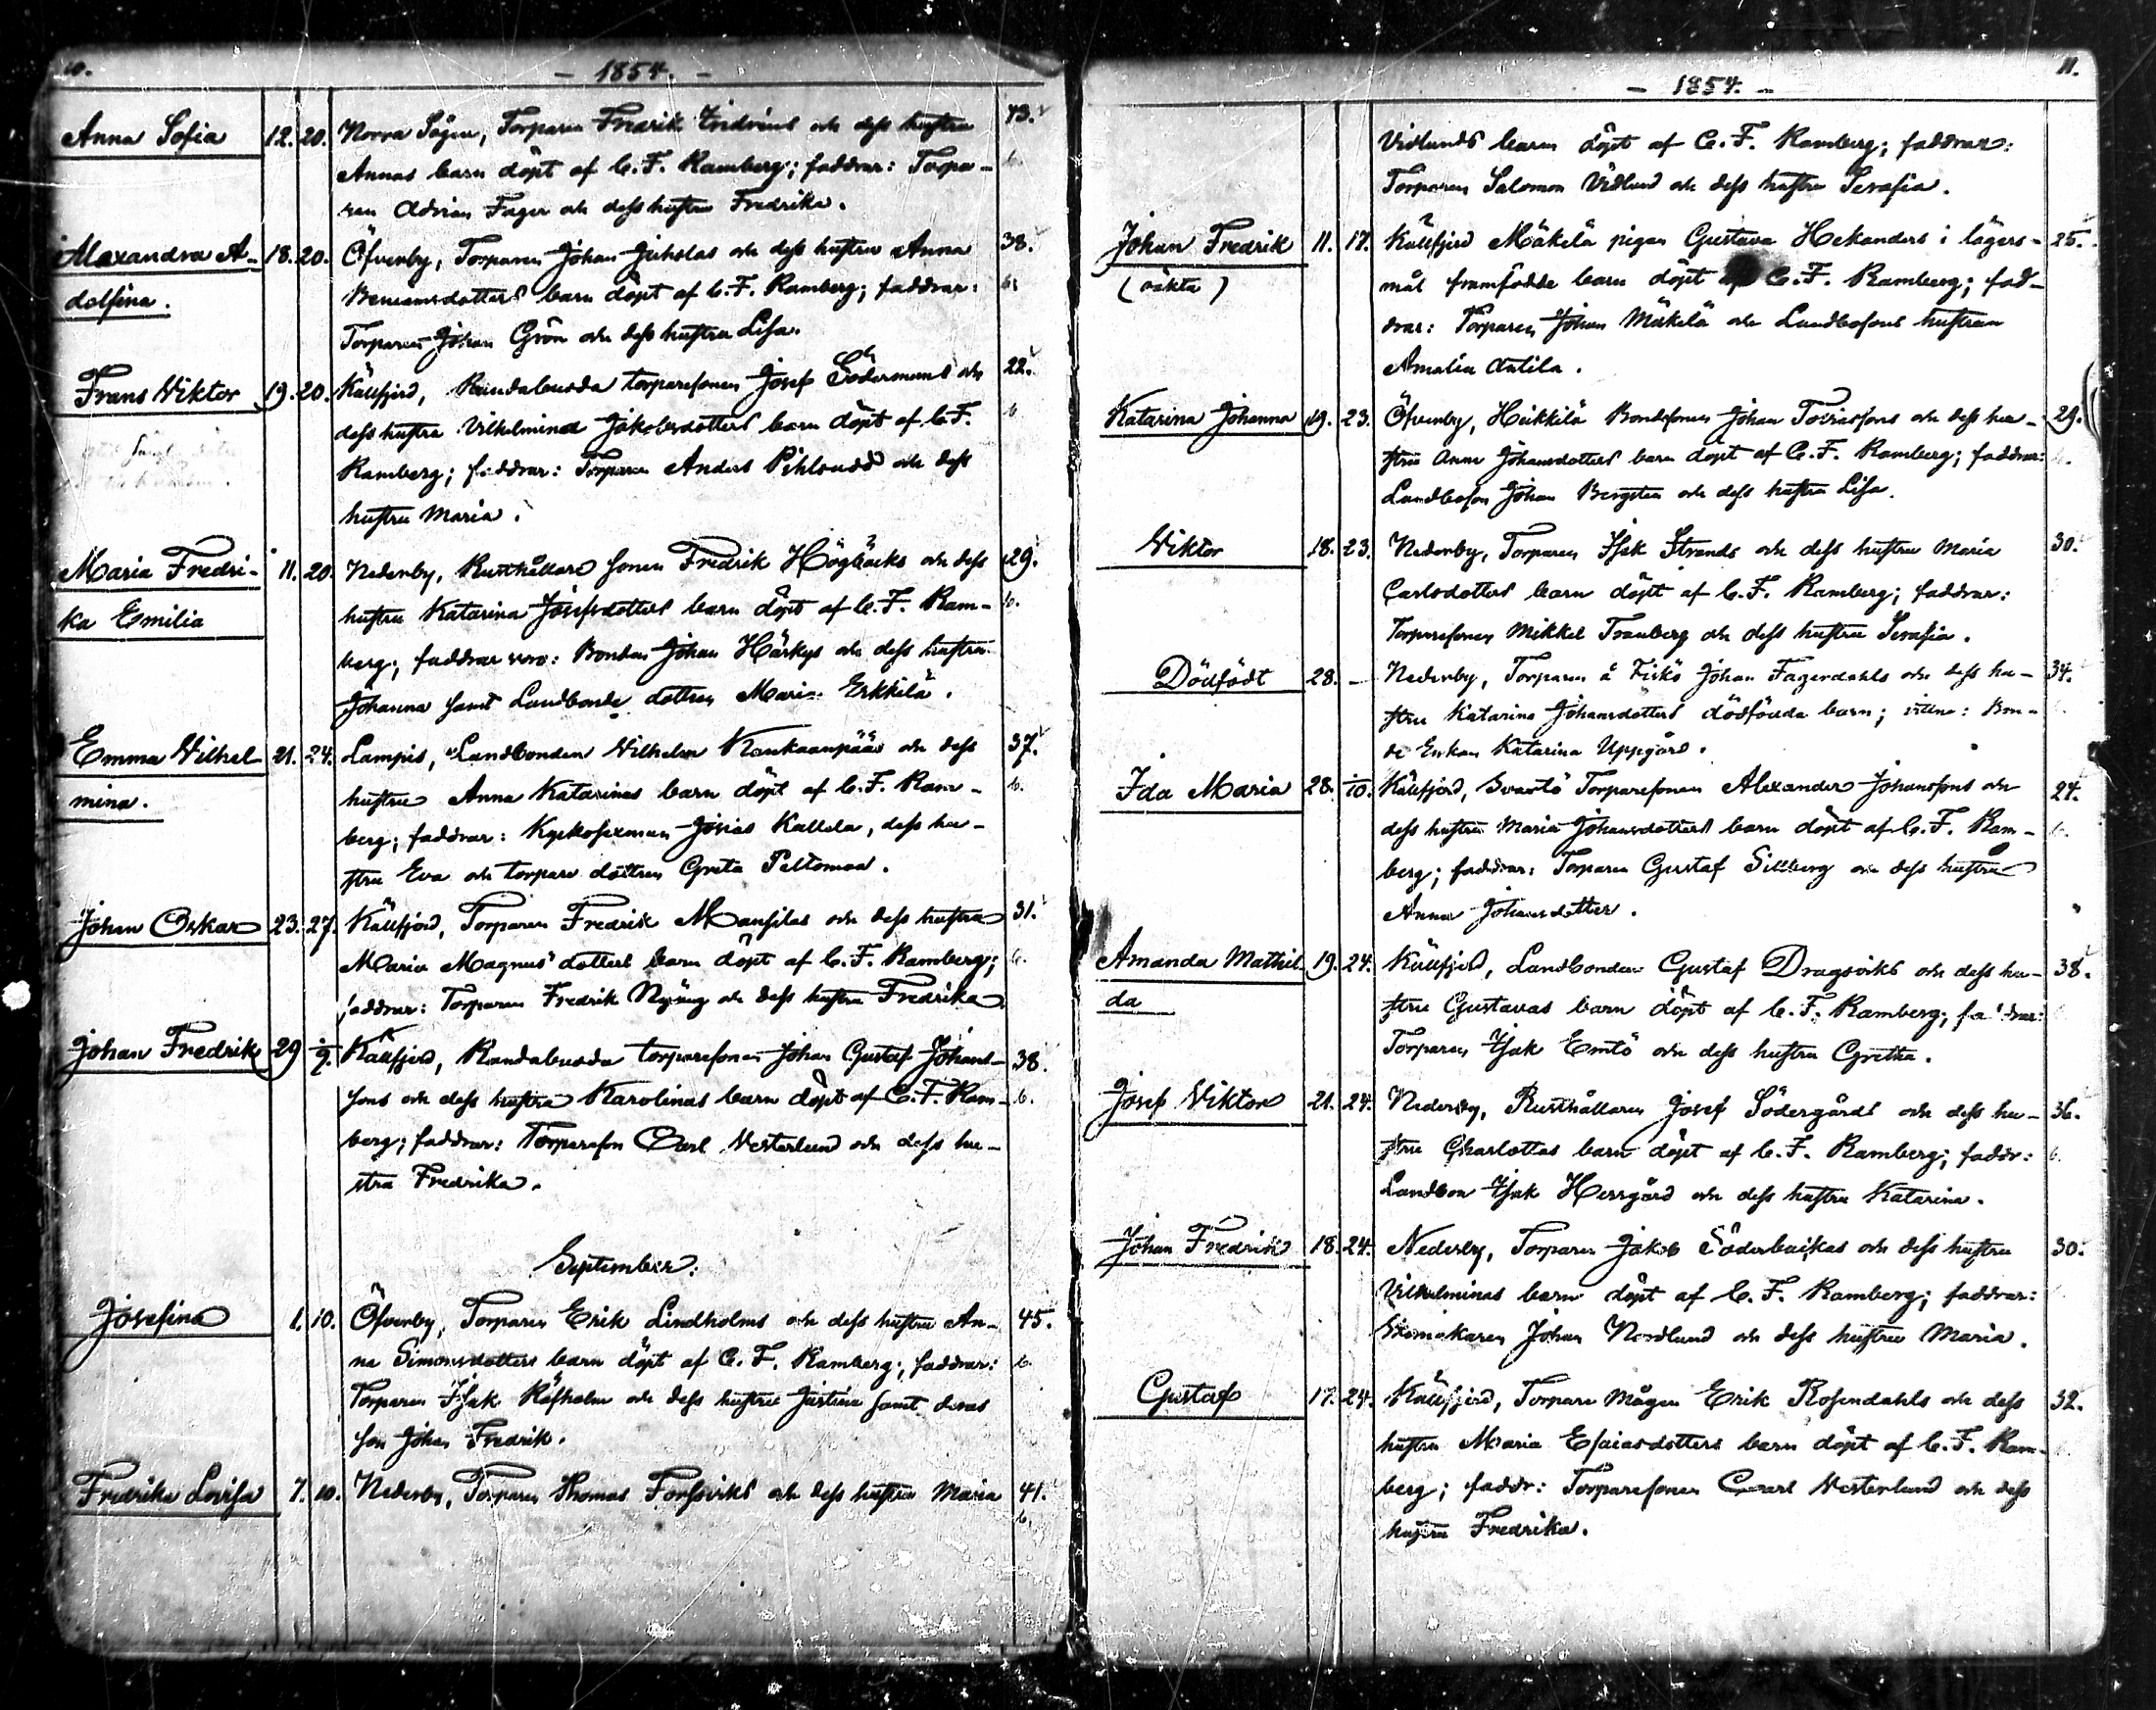 10.
- 1854. -
Anna Sofia 12. 20. Norra Sågen, Torparen Fredrik Indréns och dess hustru 43.
Annas barn döpt af C. F. Ramberg; faddrar: Torpa- 6.
ren Adrian Fager och dess hustru Fredrika.
Alexandra A- 18. 20. Öfverby, Torparen Johan Juholas och dess hustru Anna 38.
dolfina. Beniamsdotters barn döpt af C. F. Ramberg; faddrar: 6.
Torparen Johan Grön och dess hustru Lisa.
Frans Viktor 19. 20. Källfjerd, Randabudda torparesonen Josef Södermans och 22.
dess hustru Vilhelmina Jakobsdotters barn döpt af C. F. 6.
Ramberg; faddrar: Torparen Anders Pihlsudd och dess
hustru Maria.
Maria Fredri- 11. 20. Nederby, Rusthållare sonen Fredrik Högbacks och dess 29.
ka Emilia hustru Katarina Josefsdotters barn döpt af C. F. Ram- 6.
berg; faddrar voro: Bonden Johan Härkys och dess hustru
Johanna samt Landbonde dottren Maria Erkkilä.
Emma Vilhel 21. 24. Lampis, Landbonden Vilhelm Kankaanpääs och dess 37.
mina. hustru Anna Katarinas barn döpt af C. F. Ram- 6.
berg; faddrar: Kyrkosexman Josias Kallela, dess hu-
stru Eva och torpare dottren Greta Peltomaa.
Johan Oskar 23. 27. Källfjord, Torparen Fredrik Mansilas och dess hustru 31.
Maria Magnus dotters barn döpt af C. F. Ramberg; 6.
faddrar: Torparen Fredrik Nyäng och dess hustru Fredrika
Johan Fredrik 29 9. Källfjerd, Randabudda torparesonen Johan Gustaf Johans- 38.
sons och dess hustru Karolinas barn döpt af C. F. Ram- 6.
berg; faddrar: Torpareson Carl Vesterlund och dess hu-
stru Fredrika.
September:
Josefina 1. 10. Öfverby, Torparen Erik Lindholms och dess hustru An- 45.
na Simonsdotters barn döpt af C. F. Ramberg; faddrar: 6.
Torparen Isak Räfholm och dess hustru Justina samt deras
son Johan Fredrik.
Fredrika Lovisa 7. 10. Nederby, Torparen Thomas Forssviks och dess hustru Maria 41.
6.
11.
- 1854. -
Vidlunds barn döpt af C. F. Ramberg; faddrar:
Torparen Salomon Vidlund och dess hustru Serafia.
Johan Fredrik 11. 17. Källfjerd Mäkelä pigan Gustava Hekanders i lägers- 25.
(oäkta) mål framfödde barn döpt af C. F. Ramberg; fad-
drar: Torparen Johan Mäkelä och Landbosons hustrun
Amalia Antila.
Katarina Johanna 19. 23. Öfverby, Heikkilä Bondesonen Johan Tobiassons och dess hu- 29.
stru Anna Johansdotters barn döpt af C. F. Ramberg; faddrar: 6.
Landboson Johan Bergsten och dess hustru Lisa.
Viktor 18. 23. Nederby, Torparen Isak Strands och dess hustru Maria 30.
Carlsdotters barn döpt af C. F. Ramberg; faddrar:
Torparesonen Mikkel Tranberg och dess hustru Serafia.
Dödfödt 28. - Nederby, Torparen å Fiskö Johan Fagerdahls och dess hu- 34.
stru Katarina Johansdotters dödfödda barn; vittne: Bon-
de Enkan Katarina Uppgård.
Ida Maria 28. 10. Källfjord, Svartö Torparesonen Alexander Johanssons och 24.
dess hustru Maria Johansdotters barn döpt af C. F. Ram- 6.
berg; faddrar: Torparen Gustaf Sillberg och dess hustru
Anna Johansdotter.
Amanda Mathil- 19. 24. Källfjerd, Landbonden Gustaf Dragsviks och dess hu- 38.
da stru Gustavas barn döpt af C. F. Ramberg; faddrar:
Torparen Isak Emtö och dess hustru Gretha.
Josef Viktor 21. 24. Nederby, Rusthållaren Josef Södergårds och dess hu- 36.
stru Charlottas barn döpt af C. F. Ramberg; faddr: 6.
Landbon Isak Herrgård och dess hustru Katarina.
Johan Fredrik 18. 24. Nederby, Torparen Jakob Söderbackas och dess hustru 30.
Vilhelminas barn döpt af C. F. Ramberg; faddrar:
Skomakaren Johan Nordlund och dess hustru Maria.
Gustaf 17. 24. Källfjerd, Torpare Mågen Erik Rosendahls och dess 32.
hustru Maria Esaiasdotters barn döpt af C. F. Ram-
berg; faddr: Torparesonen Carl Vesterlund och dess
hustru Fredrika.